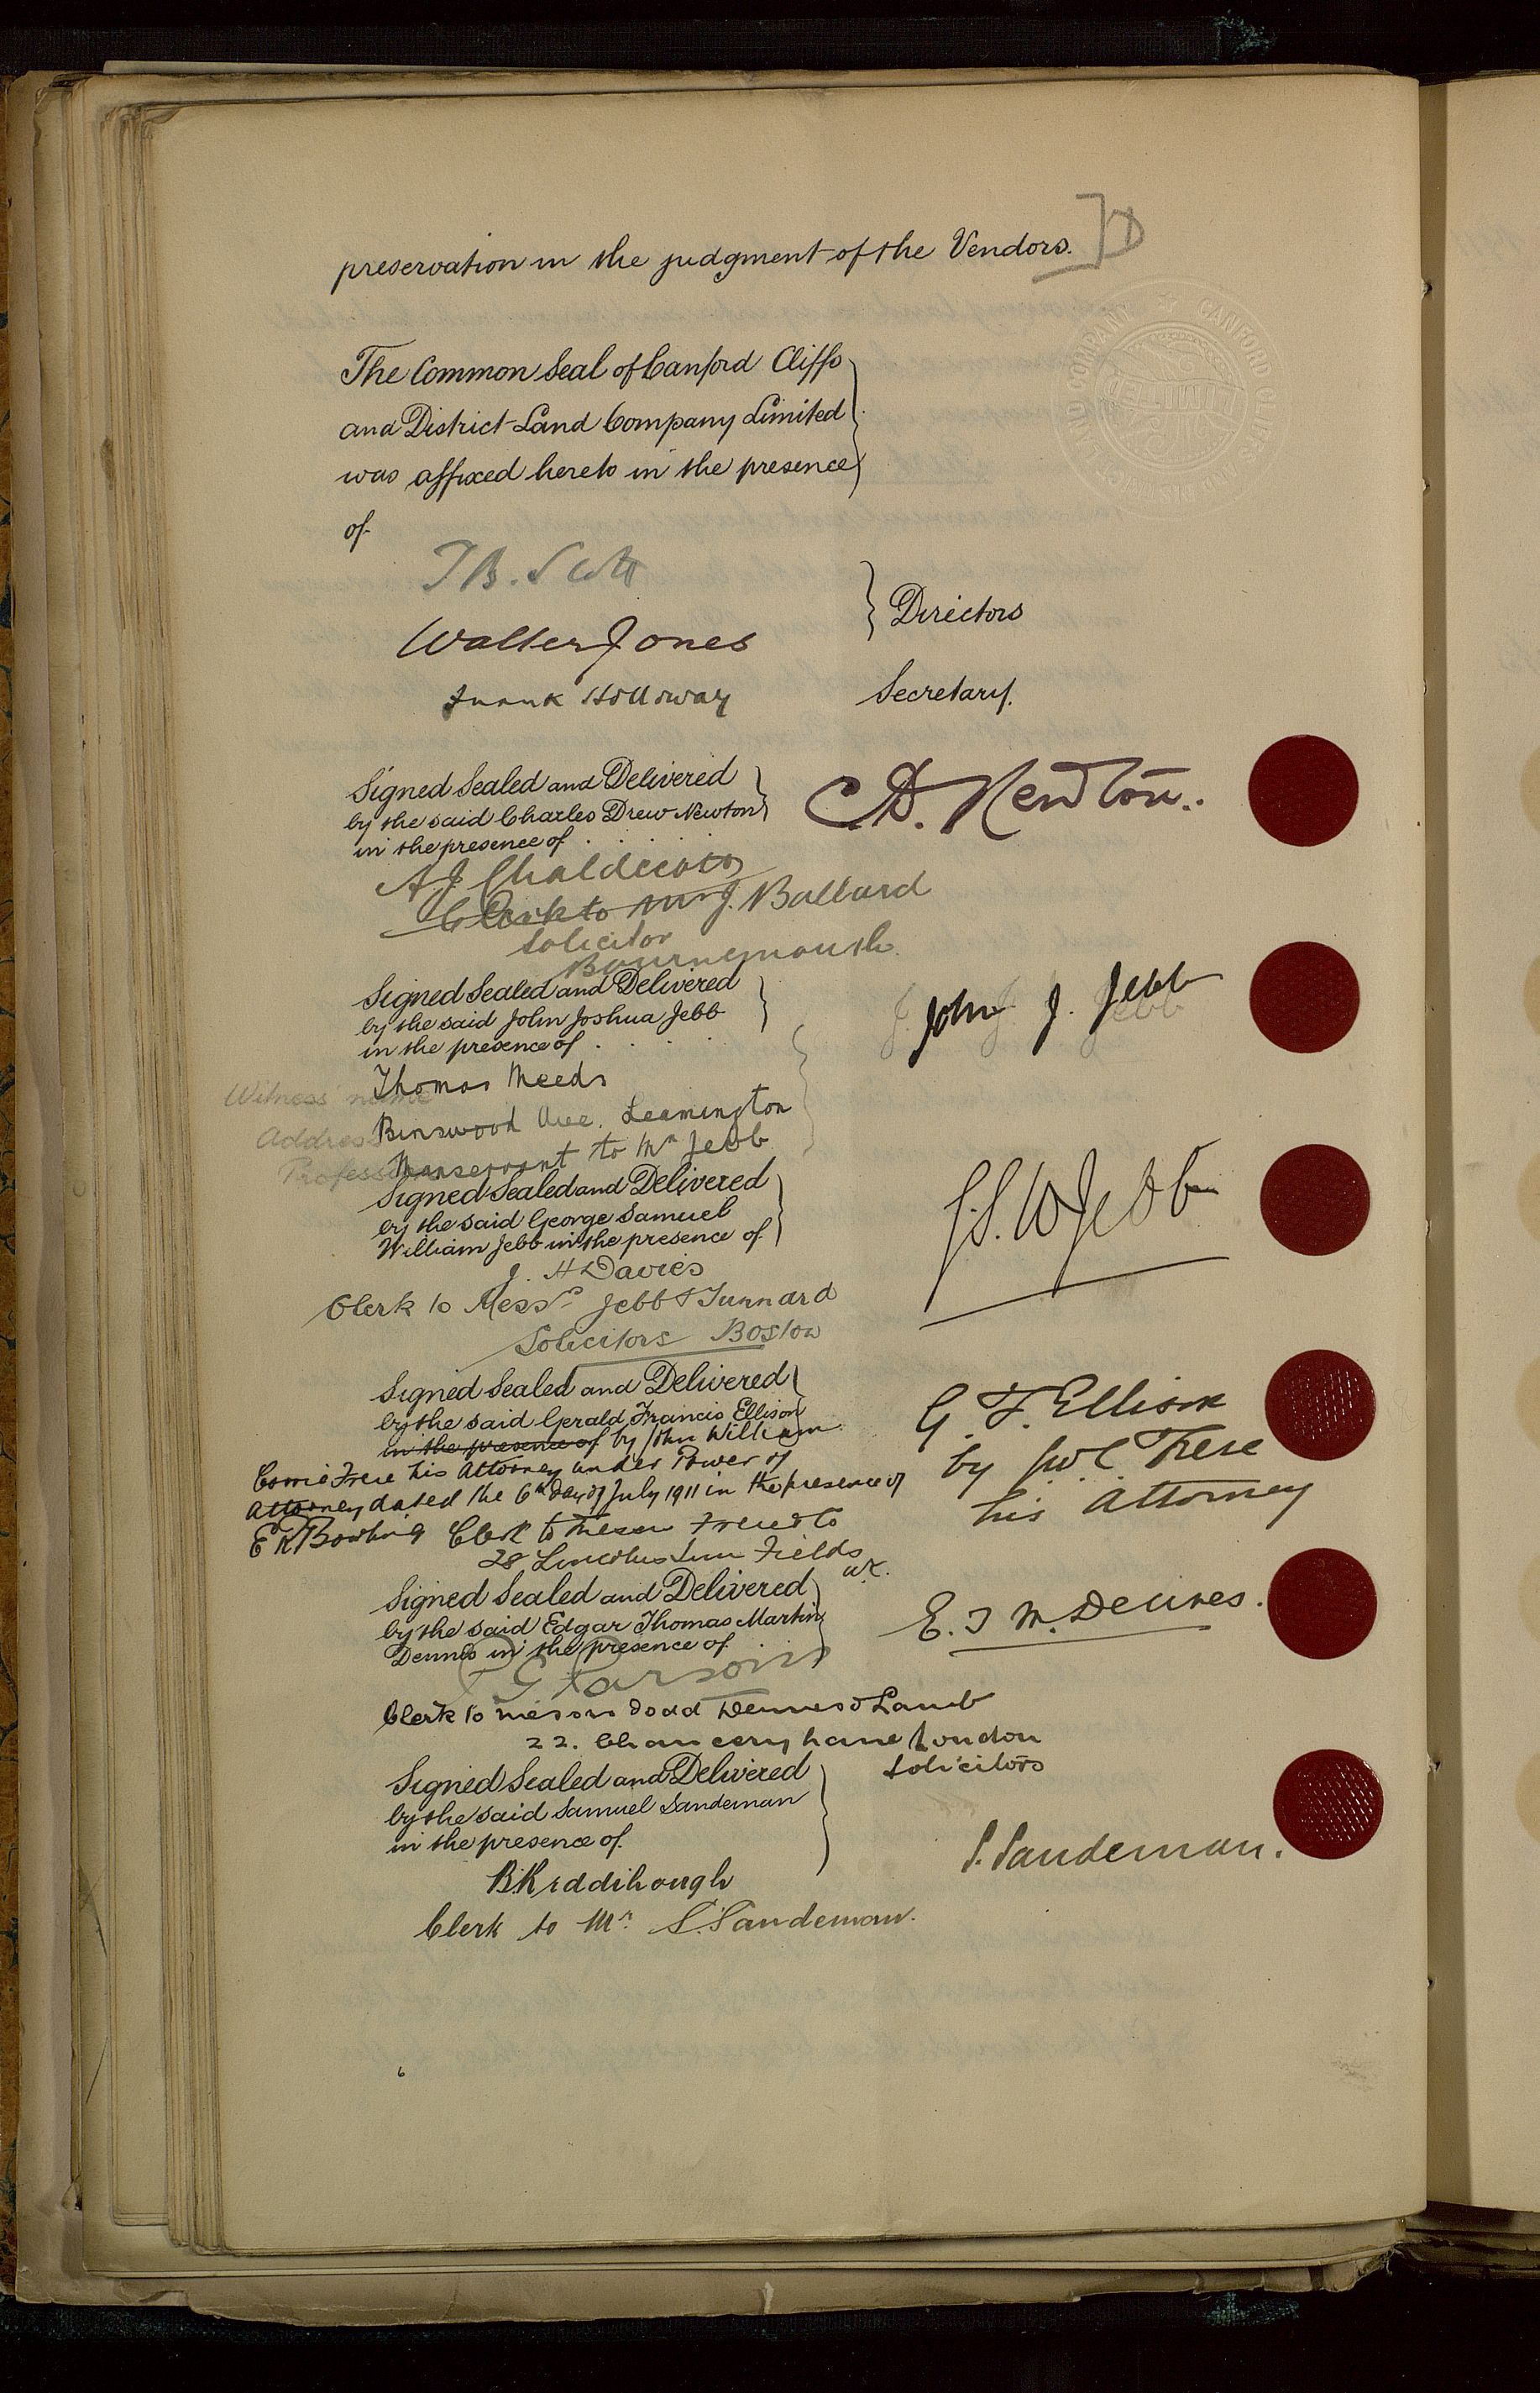 preservation in the judgment of the Vendors. ]D
LAND COMPANY CANFORD CLIFFS
The Common Seal of Canford Cliffs
and District Land Company Limited
was affixed hereto in the presence
of
T B. Scott
Walter Jones
Directors
Frank Holloway
Secretary.
Signed Sealed and Delivered
by the said Charles Drew Newton
in the presence of
C D. Newton.
A J Chaldecott
Clerk to Mr J. Ballard
Solicitor
Bournemouth.
Signed Sealed and Delivered
by the said John Joshua Jebb
in the presence of
John J. Jebb
Witness' name Thomas Meeds
Address Binswood Ave. Leamington
Profession Manservant to Mr Jebb
Signed Sealed and Delivered
by the said George Samuel
William Jebb in the presence of
G.S.W Jebb
J. H Davies
Clerk to Messrs Jebb & Tunnard
Solicitors Boston
Signed Sealed and Delivered
by the said Gerald Francis Ellison
in the presence of by John William
Comie Frere his Attorney under Power of
Attorney dated the 6th day of July 1911 in the presence of
G. F. Ellison
by J.W.C. Frere
his Attorney
E K Bowling Clerk to Messrs Frere & Co
28 Lincolns Inn Fields
W.C.
Signed Sealed and Delivered
by the said Edgar Thomas Martin
Dennes in the presence of
E. T M. Dennes.
G Parsons
Clerk to Messrs Dodd Dennes & Lamb
22. Chancery Lane London
Solicitors
Signed Sealed and Delivered
by the said Samuel Sandeman
in the presence of
S. Sandeman.
B Kriddihough
Clerk to Mr. S. Sandeman.